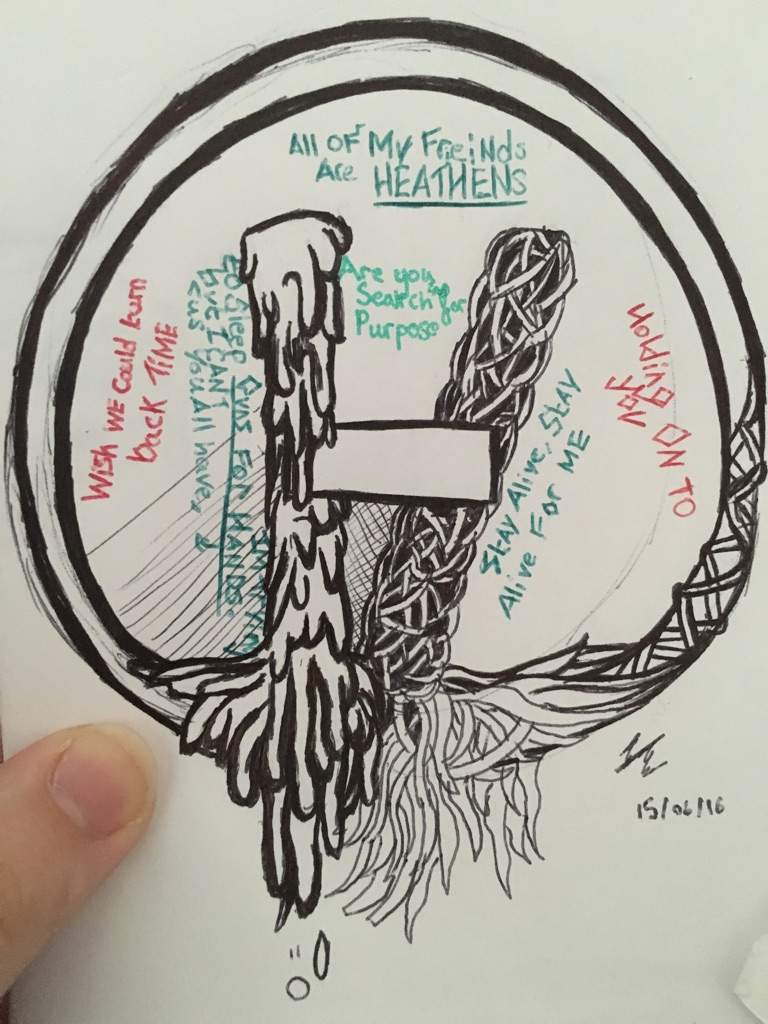 All OF My FreiNds
Are HEATHENS
Are you
Searching for
Purpose
Wish WE Could turn
back TIME
Im trying
to Sleep
but I CANT
cus you All have,
Guns FOR HANDS.
Stay Alive, Stay
Alive For ME
holding ON TO
you
15/06/16